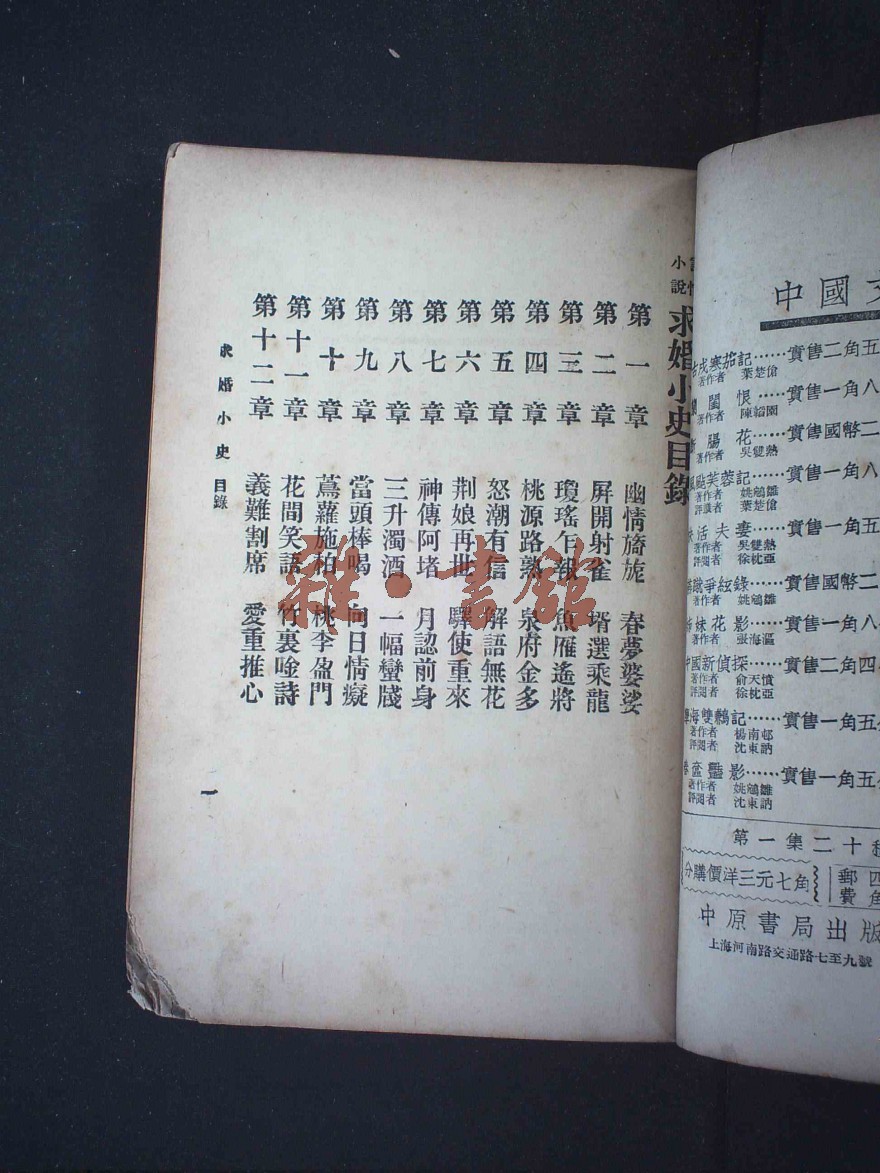 小說
求婚小史目錄
第一章 幽情旖旎 春夢婆娑
第二章 屏開射雀 壻選乘龍
第三章 瓊瑤乍報 魚雁遙將
第四章 桃源路熟 泉府金多
第五章 怒潮有信 解語無花
第六章 荆娘再世 驛使重來
第七章 神傳阿堵 月認前身
第八章 三升濁酒 一幅蠻牋
第九章 當頭棒喝 向日情癡
第十章 蔦蘿施柏 桃李盈門
第十一章 花間笑語 竹裏唫詩
第十二章 義難割席 愛重推心
求婚小史 目錄
一
雜·書館
中國
戍寒笳記……實售二角五
著作者 葉楚傖
閨恨……實售一角八
著作者 陳韜園
腸花……實售國幣二
著作者 吳雙熱
芙蓉記……實售一角八
著作者 姚鵷雛
評讀者 葉楚傖
活夫妻……實售一角五
著作者 吳雙熱
評閱者 徐枕亞
蹴爭絃錄……實售國幣二
著作者 姚鵷雛
妹花影……實售一角八
著作者 張海漚
中國新偵探……實售二角四
著作者 俞天憤
評閱者 徐枕亞
海雙鶼記……實售一角五
著作者 楊南邨
評閱者 沈東訥
春奩豔影……實售一角五
著作者 姚鵷雛
評閱者 沈東訥
第一集二十
分購價洋三元七角
郵費四角
中原書局出版
上海河南路交通路七至九號